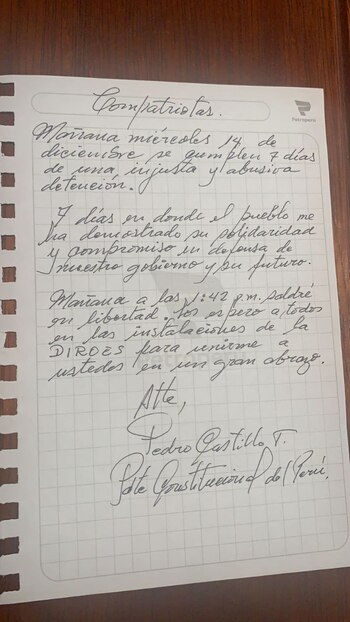 Compatriotas.
Petroperú
Mañana miércoles 14 de
diciembre se cumplen 7 días
de una injusta y abusiva
detención.
7 días en donde el pueblo me
ha demostrado su solidaridad
y compromiso en defensa de
nuestro gobierno y su futuro.
Mañana a las 1:42 p.m. saldré
en libertad. Los espero a todos
en las instalaciones de la
DIROES para unirme a
ustedes en un gran abrazo.
Atte,
Pedro Castillo T.
Pdte Constitucional del Perú.